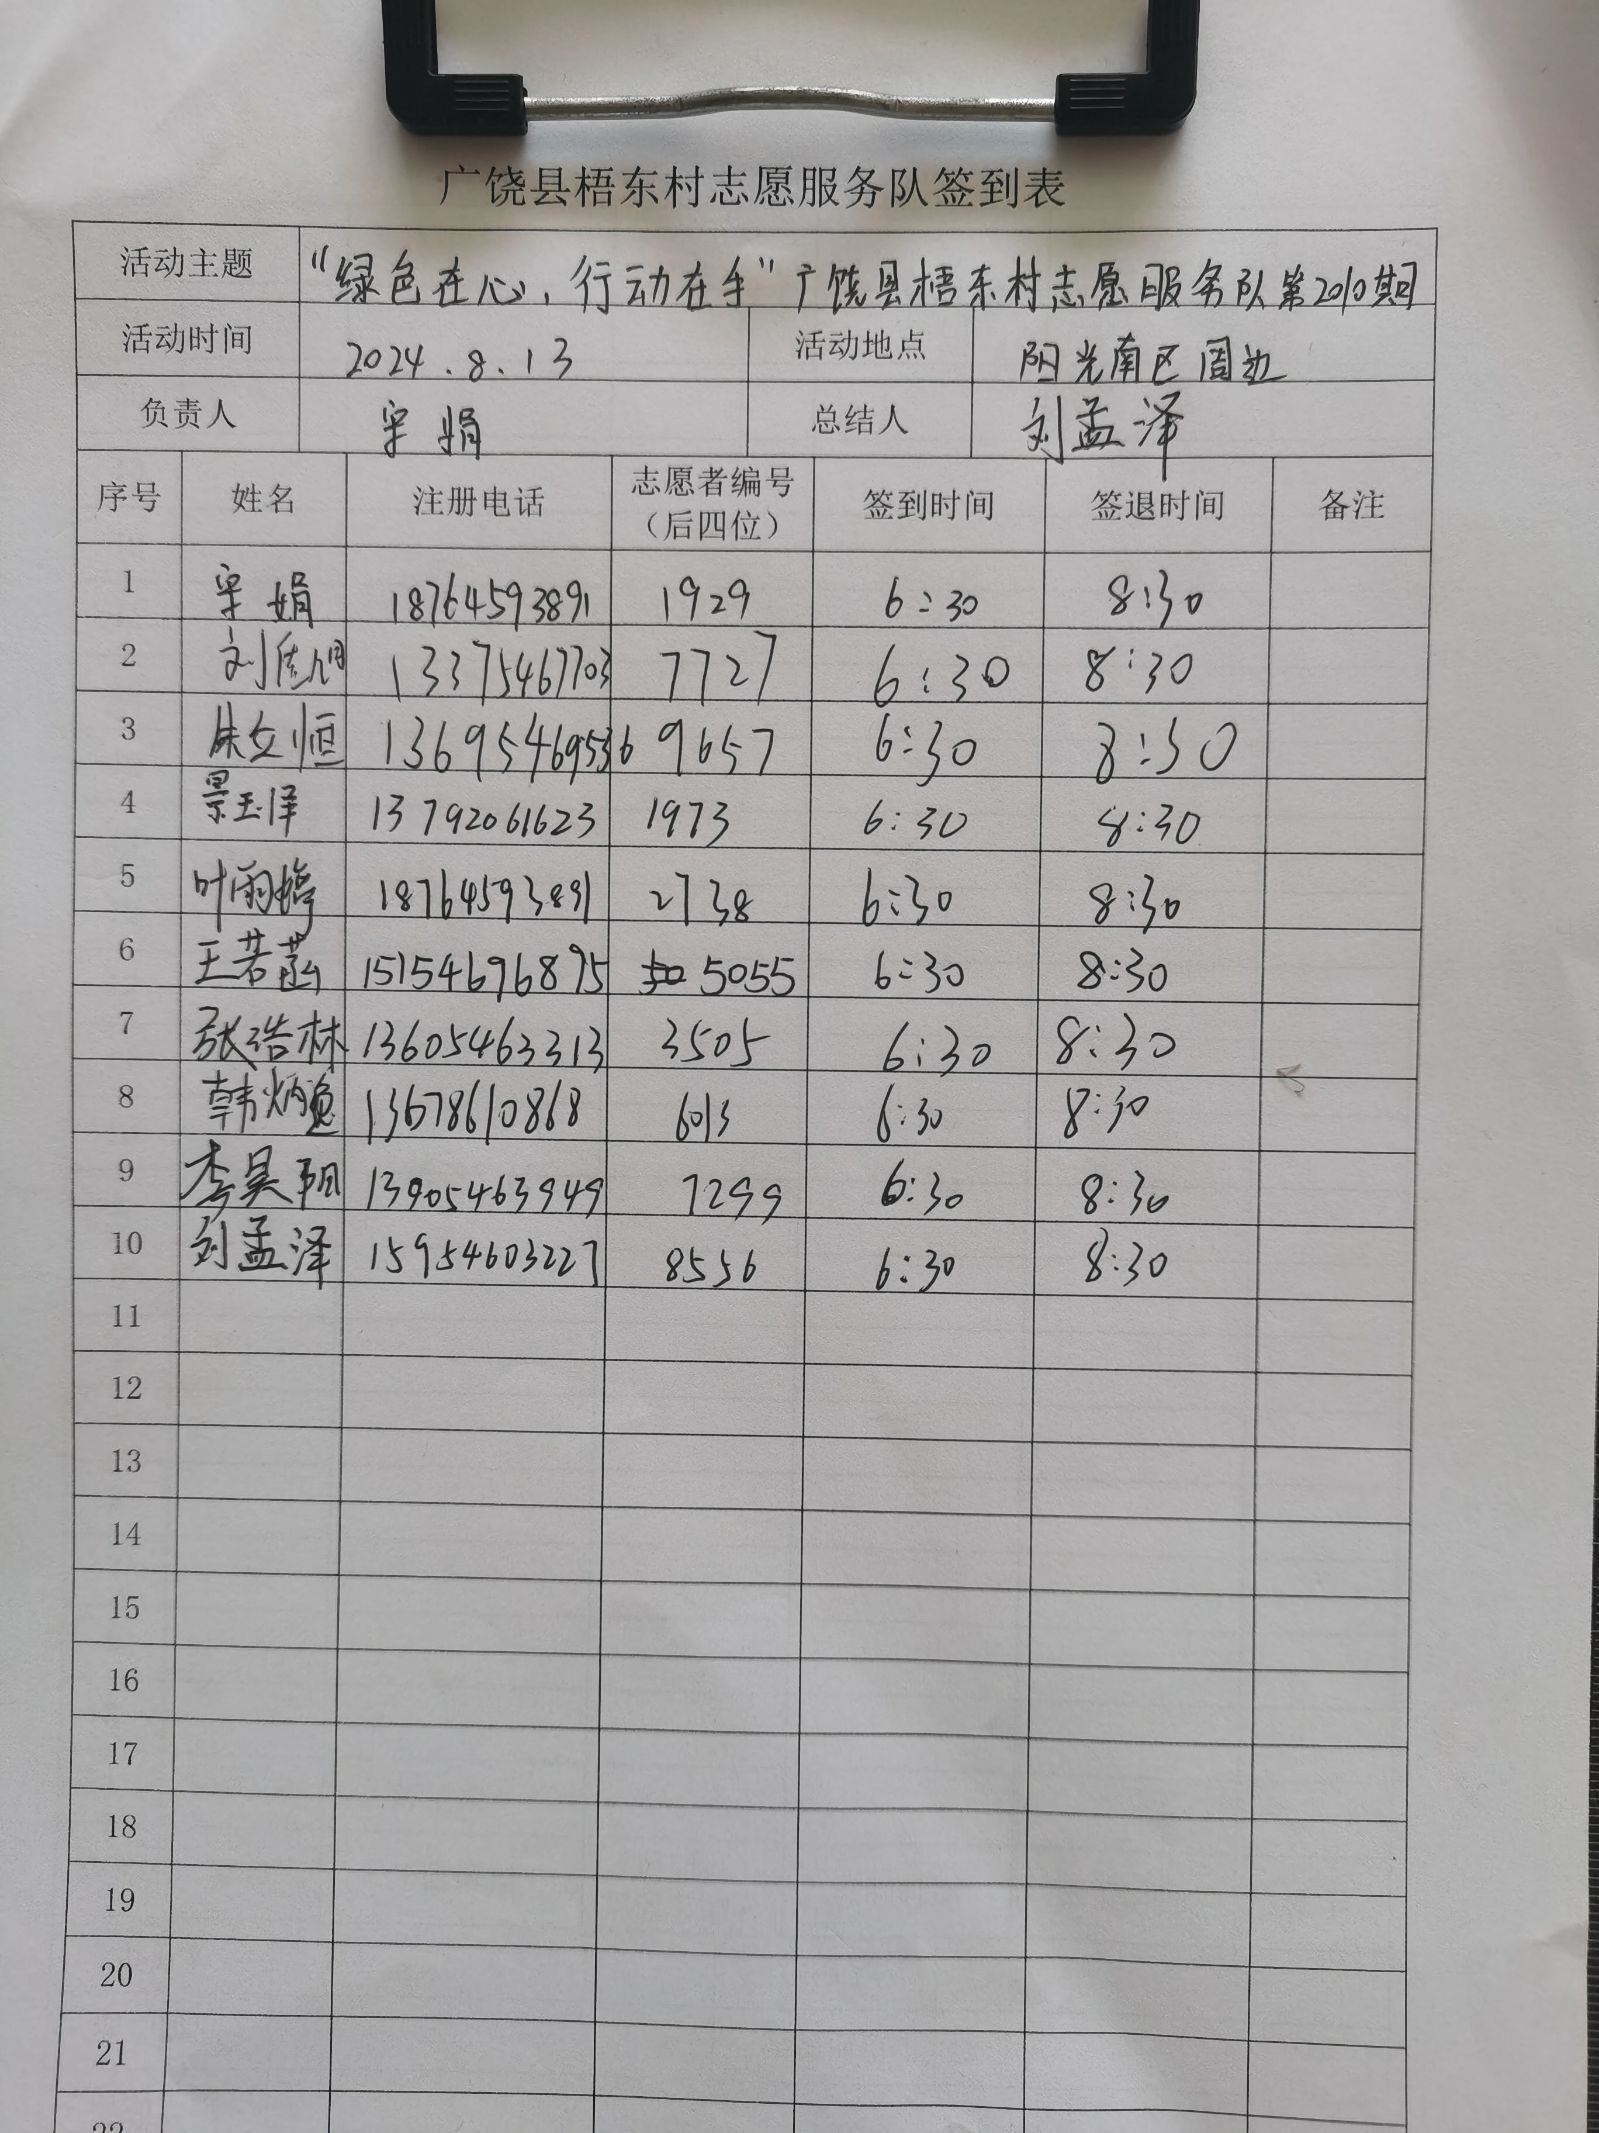 广饶县梧东村志愿服务队签到表
活动主题 "绿色在心、行动在手"广饶县梧东村志愿服务队第2010期
活动时间 2024.8.13 活动地点 阳光南区周边
负责人 宋娟 总结人 刘孟泽
序号 姓名 注册电话 志愿者编号（后四位） 签到时间 签退时间 备注
1 宋娟 18764593891 1929 6:30 8:30
2 13375467703 7727 6:30 8:30
3 朱文恒 13695469536 9657 6:30 8:30
4 景玉泽 13792061623 1973 6:30 8:30
5 叶雨婷 18764593891 2738 6:30 8:30
6 王若菡 15154696875 5055 6:30 8:30
7 张浩林 13605463313 3505 6:30 8:30
8 13678610868 6013 6:30 8:30
9 13905463949 7299 6:30 8:30
10 刘孟泽 15954603227 8556 6:30 8:30
11
12
13
14
15
16
17
18
19
20
21
22